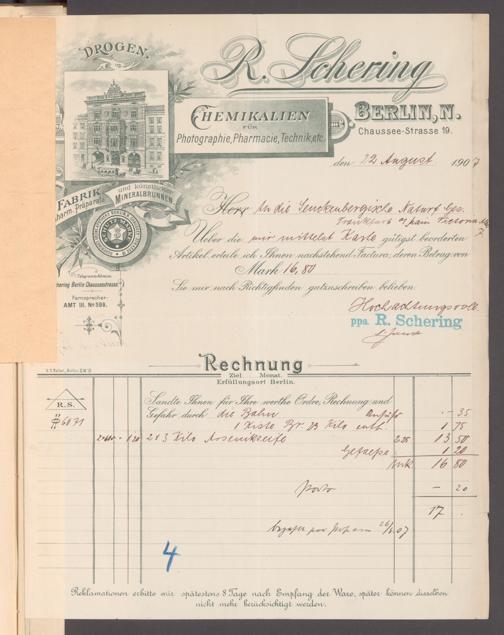 DROGEN.
R. Schering
CHEMIKALIEN
FÜR
Photographie, Pharmacie, Technik, etc.
BERLIN, N.
Chaussee-Strasse 19.
FABRIK
pharm. Präparate
und künstlicher
MINERALBRUNNEN.
den 22 August 1907
Herrn An die Senckenbergische Naturf. Ges.
Frankfurt a/Main
Ueber die mir mittelst Karte gütigst beorderten
Artikel erteile ich Ihnen nachstehend Factura, deren Betrag von
Mark 16,80
Sie mir nach Richtigfinden gutzuschreiben belieben.
Telegramm-Adresse:
Schering Berlin Chausseestrasse
Fernsprecher:
AMT III. No
Hochachtungsvoll
ppa. R. Schering
Rechnung
Ziel Monat.
Erfüllungsort Berlin.
R.S.
Sandte Ihnen für Ihre werthe Ordre, Rechnung und
Gefahr durch die Bahn
Anfuhr - 35
1 Kiste Br. 23 Kilo enth. 1 75
2 x 3 Kilo Arsenikseife 13 50
Gefaesse 1 20
Mk 16 80
Porto - 20
17 -
4
Reklamationen erbitte mir spätestens 8 Tage nach Empfang der Ware, später können dieselben
nicht mehr berücksichtigt werden.